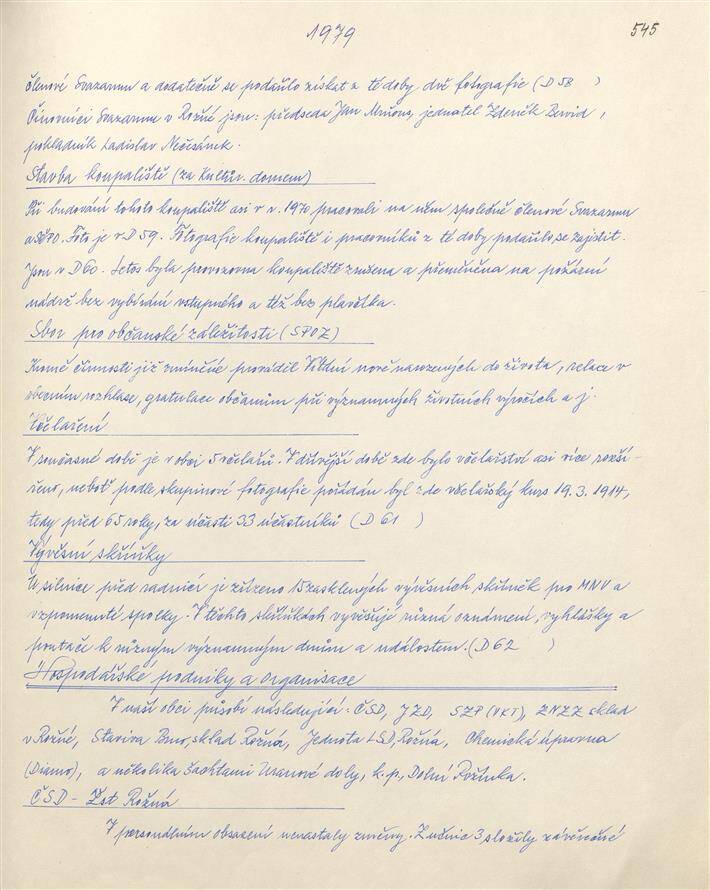 1979
545
členové Svazarmu a dodatečně se podařilo získat z té doby dvě fotografie (D 58 )
Činovníci Svazarmu v Rožné jsou: předseda Jan, jednatel Zdeněk,
pokladník Ladislav Nečesánek.
Stavba koupaliště (za Kultur. domem)
Při budování tohoto koupaliště asi r v. 1970 pracovali na něm společně členové Svazarmu
a. Foto je v D 59. Fotografie koupaliště i pracovníků z té doby podařilo se zajistit.
Jsou v D 60. Letos byla provozovna koupaliště zrušena a přeměněna na požární
nádrž bez vybírání vstupného a též bez plavčíka.
Sbor pro občanské záležitosti (SPOZ)
Kromě činnosti již zmíněné prováděl Vítání nově narozených do života, relace v
obecním rozhlase, gratulace občanům při významných životních výročích a j.
Včelaření
V současné době je v obci 5 včelařů. V dřívější době zde bylo včelařství asi více rozší-
řeno, neboť podle skupinové fotografie pořádán byl zde včelařský kurs 19. 3. 1914,
tedy před 65 roky, za účasti 33 účastníků (D 61 )
Vývěsní skříňky
U silnice před radnicí je zřízeno 15 zasklených vývěsních skříněk pro MNV a
vzpomenuté spolky. V těchto skříňkách vyvěšují různá oznámení, vyhlášky a
poutače k různým významným dnům a událostem. (D 62 )
Hospodářské podniky a organisace
V naší obci působí následující: ČSD, JZD, SZP (VKT), ZNZZ sklad
v Rožné, Staviva Brno, sklad Rožná, Jednota LSD, Rožná, Chemická úpravna
(Diamo), a několika šachtami Uranové doly, k.p., Dolní Rožínka.
ČSD - Žst Rožná
V personálním obsazení nenastaly změny. Z učnic 3 složily závěrečné